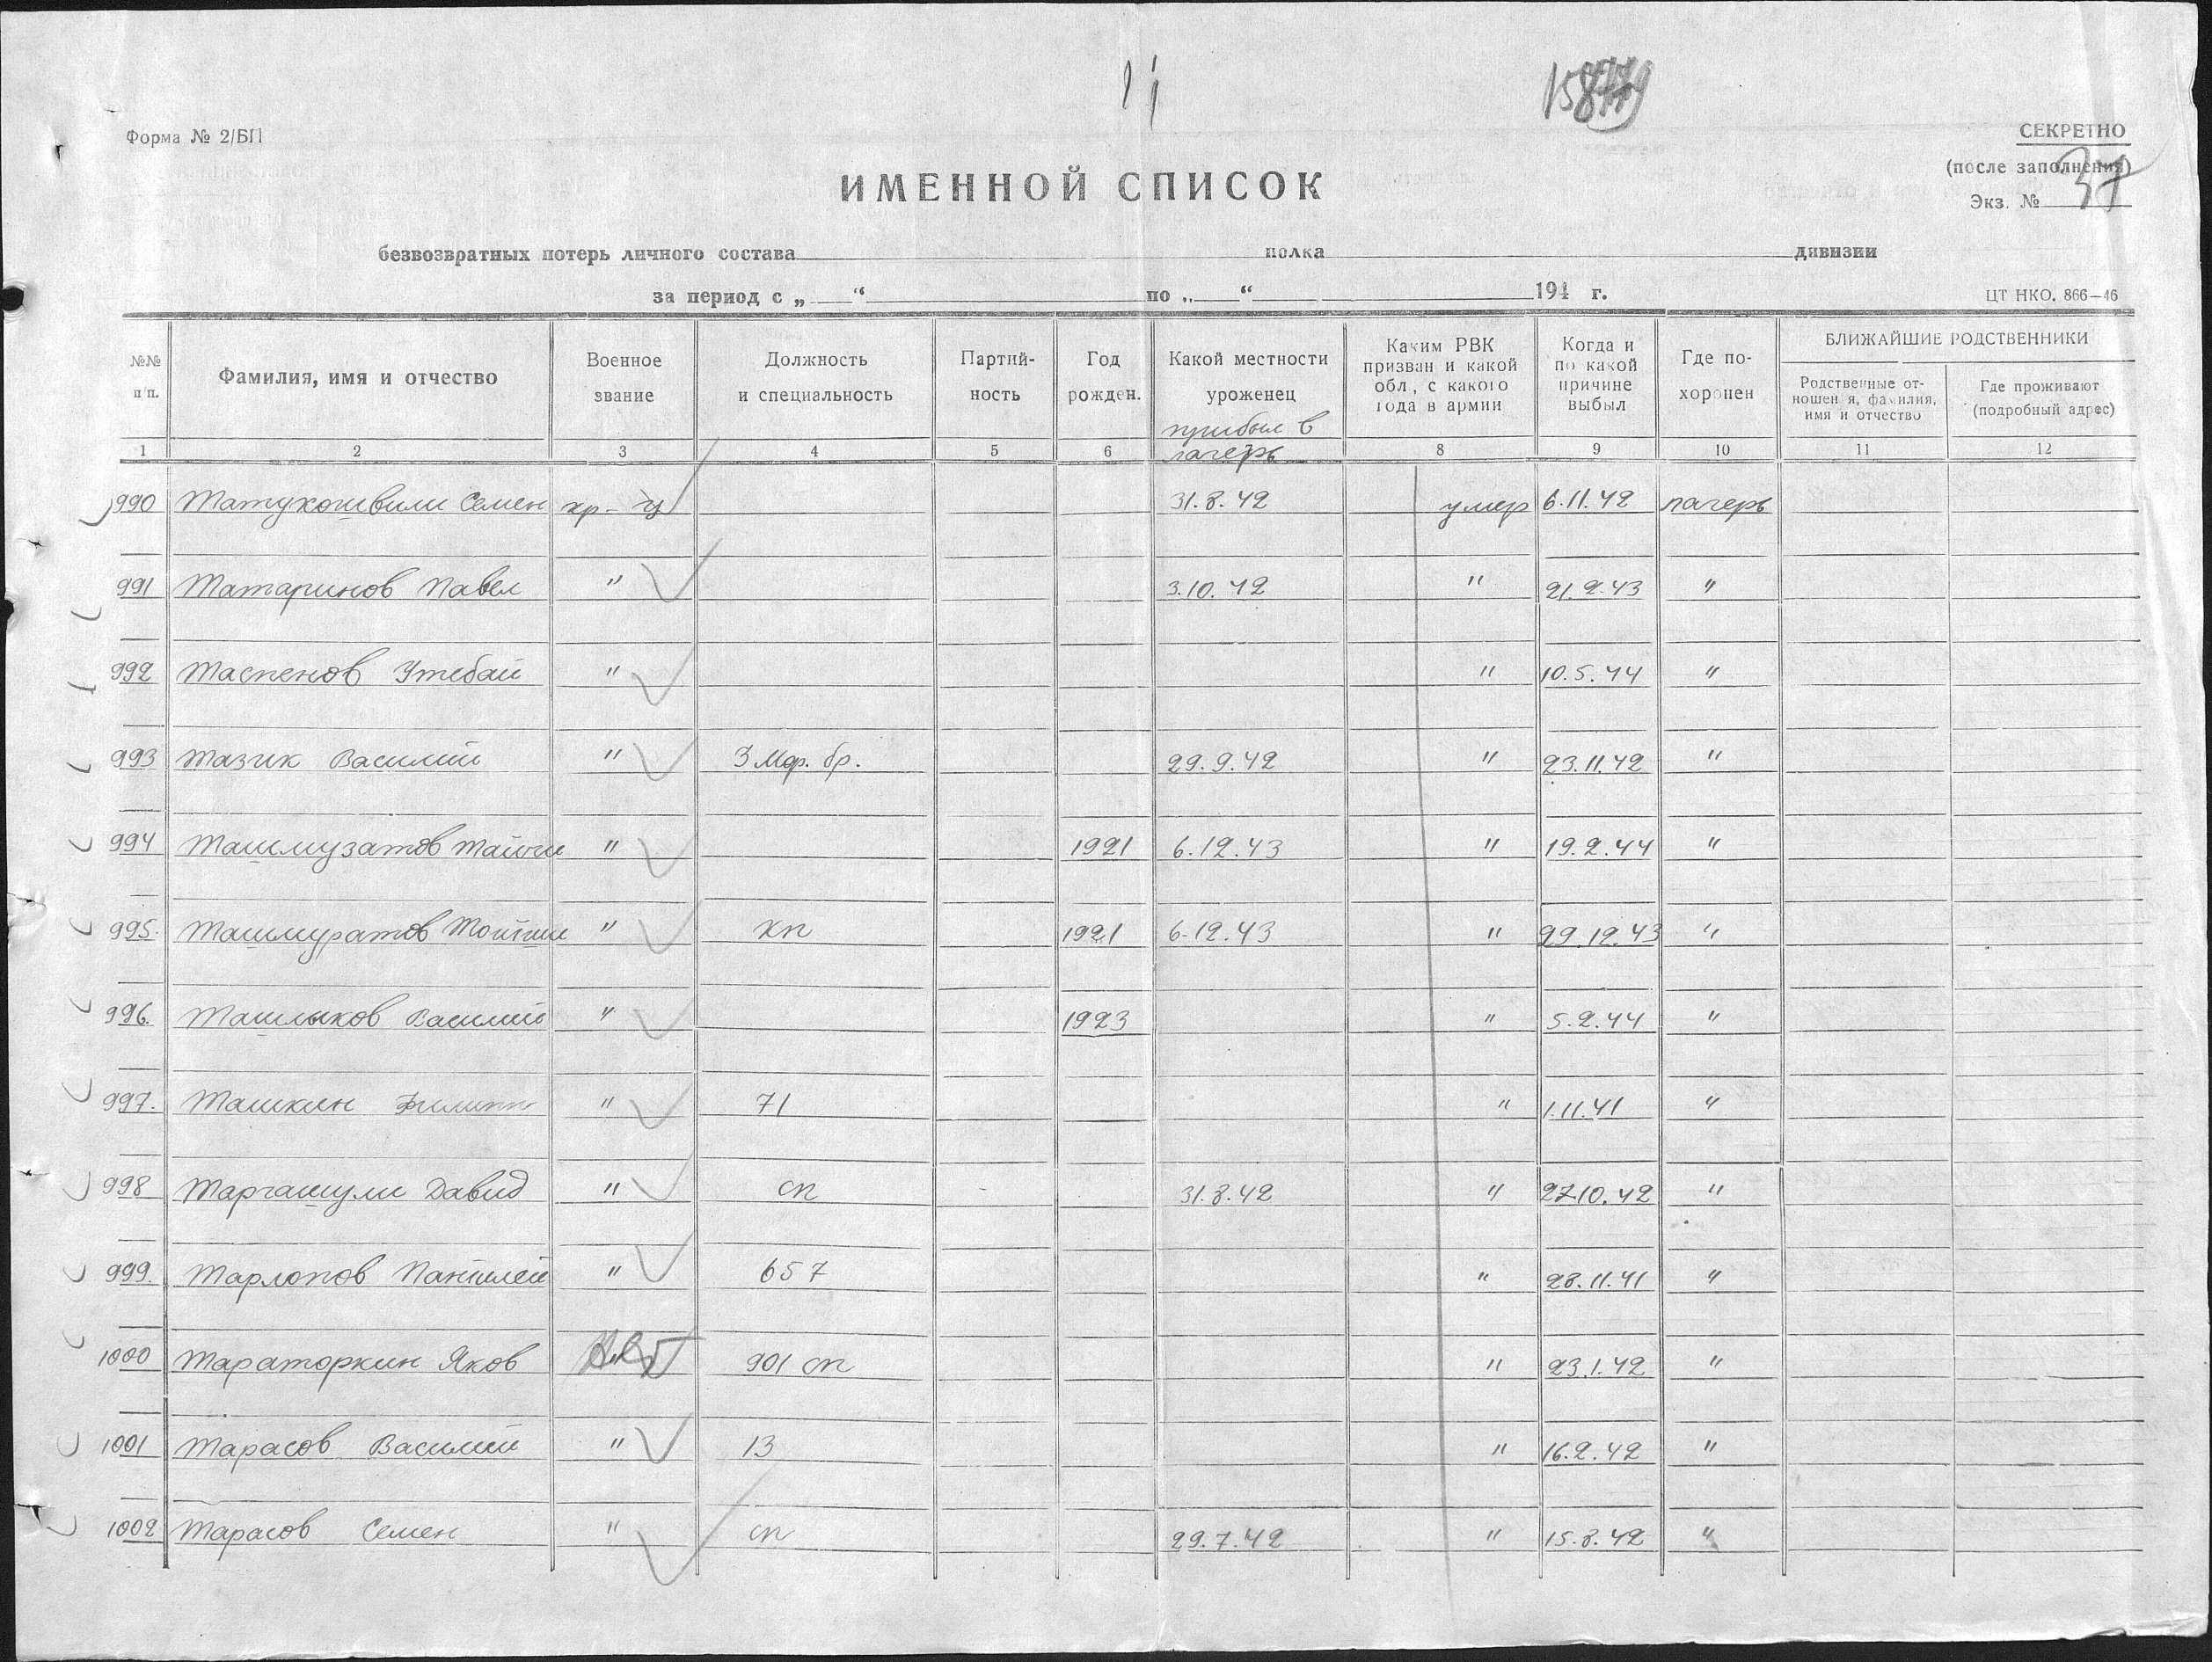 Форма № 2/БП
СЕКРЕТНО
(после заполнения)
Экз. № 37
ИМЕННОЙ СПИСОК
безвозвратных потерь личного состава полка дивизии
за период с „ “ по „ “ 194 г.
ЦТ НКО. 866—46
№№ п/п. Фамилия, имя и отчество Военное звание Должность и специальность Партийность Год рожден. Какой местности уроженец прибыл в лагерь Каким РВК призван и какой обл, с какого года в армии Когда и по какой причине выбыл Где похоронен БЛИЖАЙШИЕ РОДСТВЕННИКИ
Родственные отношения, фамилия, имя и отчество Где проживают (подробный адрес)
1 2 3 4 5 6 7 8 9 10 11 12
990 Татукошвили Семен кр-ц 31.8.42 умер 6.11.42 лагерь
991 Татаринов Павел " 3.10.42 " 21.2.43 "
992 Таспенов Утебай " " 10.5.44 "
993 Тазик Василий " 3 Мор. бр. 29.9.42 " 23.11.42 "
994 Ташмузатов " 1921 6.12.43 " 19.2.44 "
995. Ташмуратов " 1921 6.12.43 " 29.12.43 "
996. Ташлыков Василий " 1923 " 5.2.44 "
997. Ташкин Филипп " 71 " 1.11.41 "
998 Давид " сп 31.8.42 " 27.10.42 "
999. Тарлопов Пантилей " 657 " 28.11.41 "
1000 Тараторкин Яков " 901 сп " 23.1.42 "
1001 Тарасов Василий " 13 " 16.2.42 "
1002 Тарасов Семен " сп 29.7.42 " 15.8.42 "